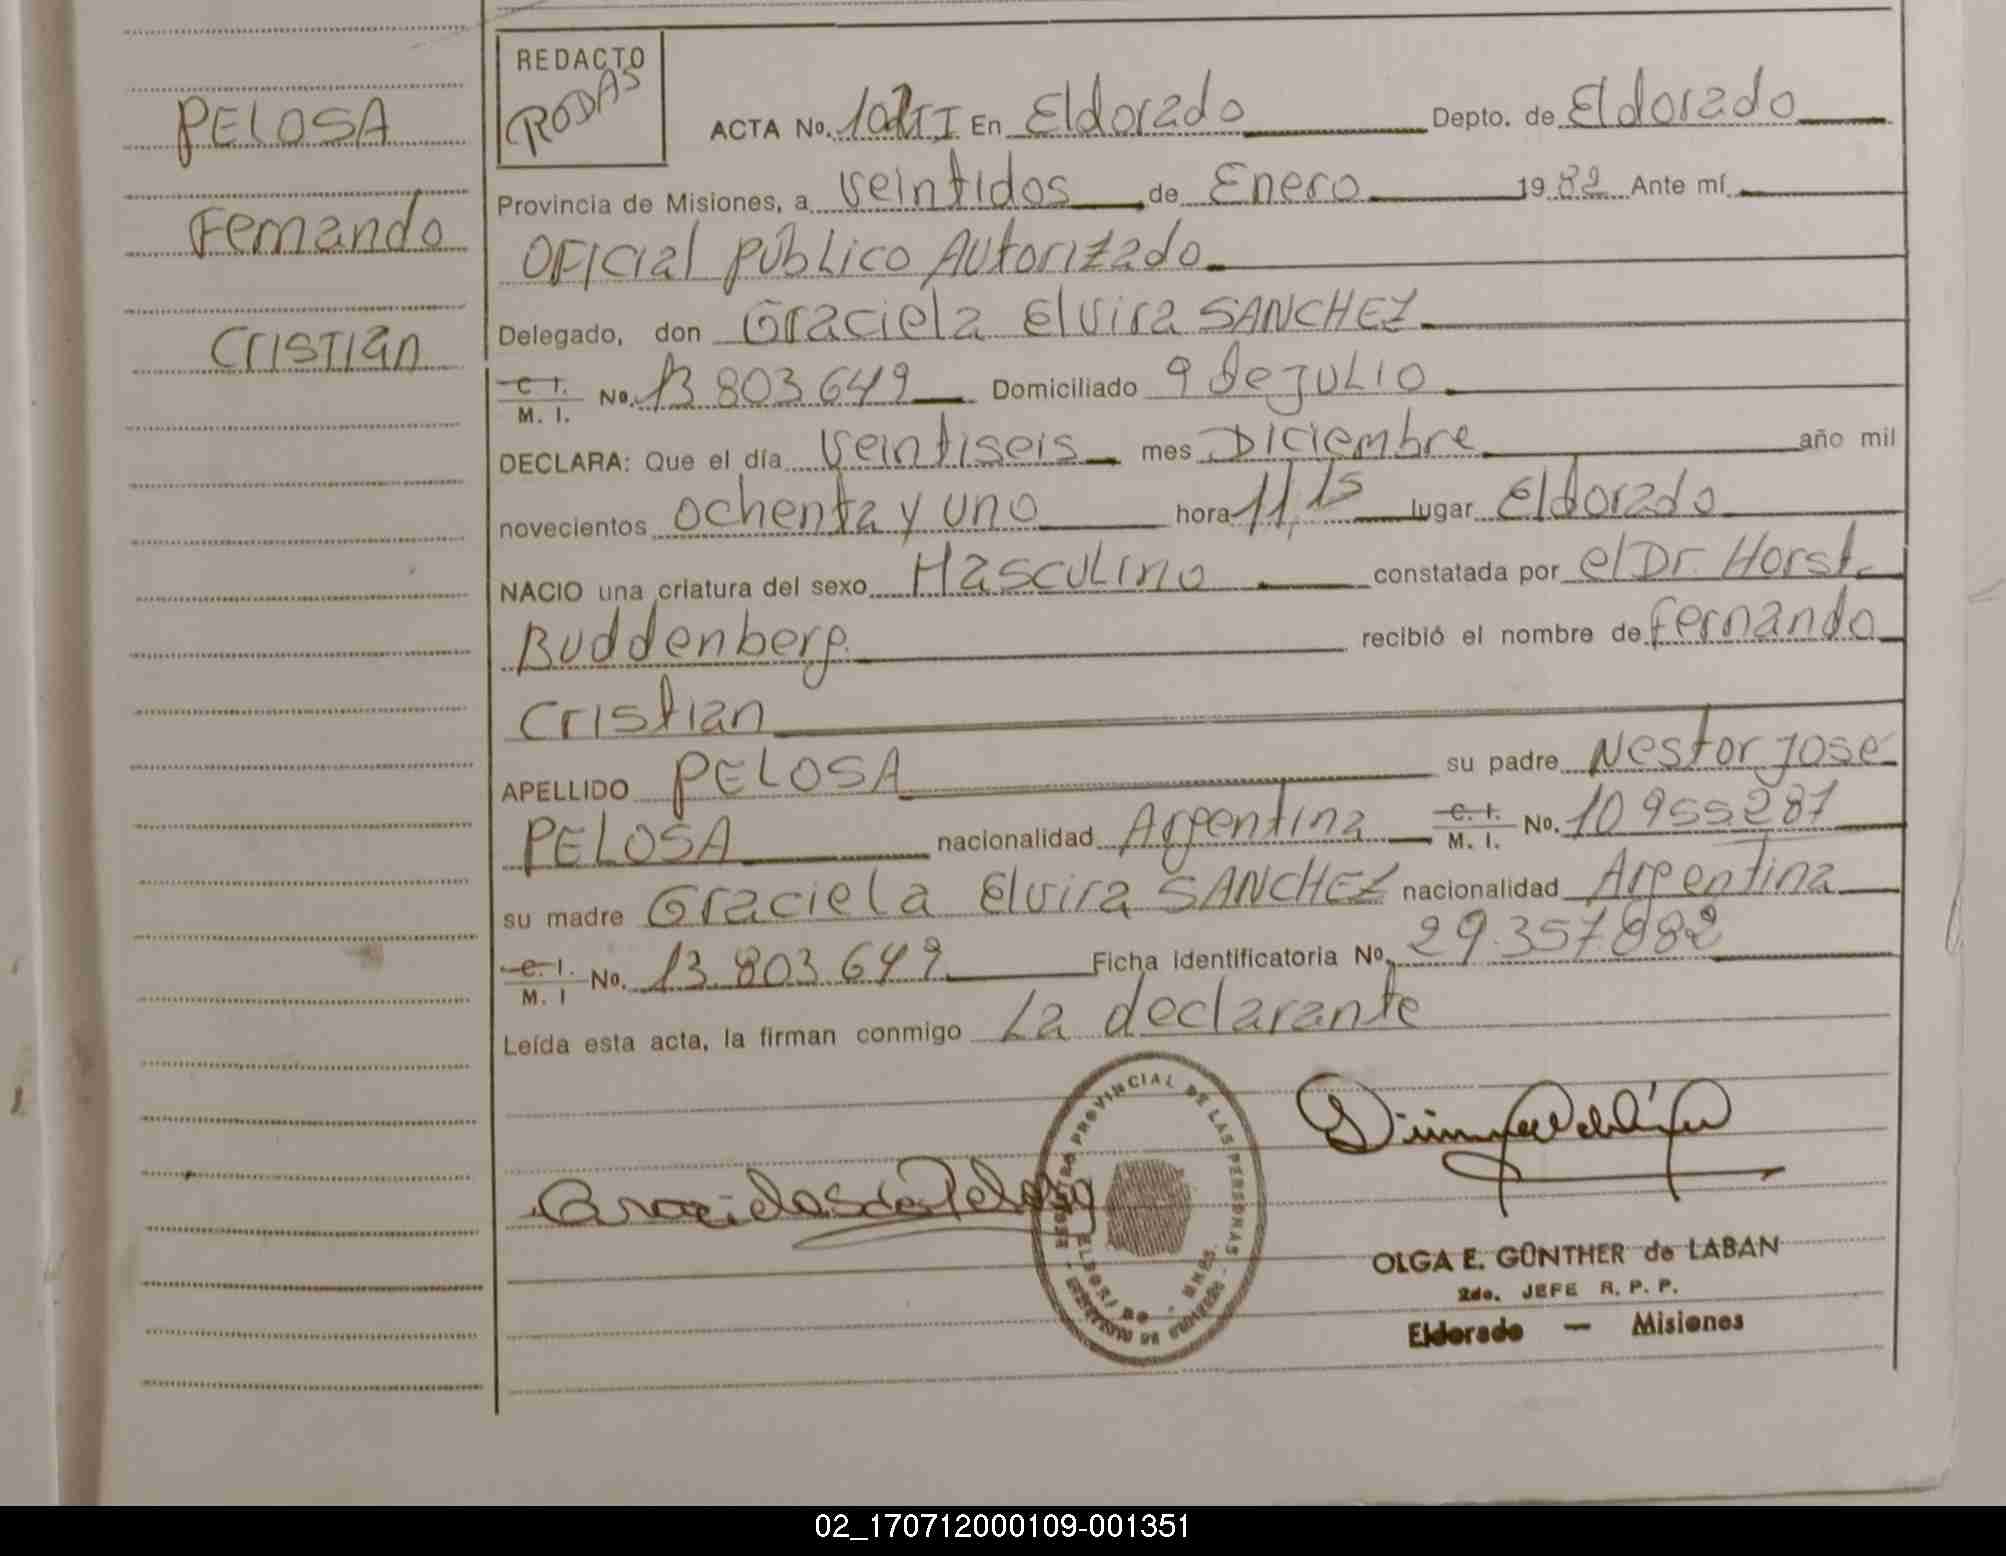 PELOSA
Fernando
Cristian
REDACTO
RODAS
ACTA No. En Eldorado Depto. de Eldorado
Provincia de Misiones, a veintidos de Enero 1982 Ante mí
Oficial público Autorizado
Delegado, don Graciela Elvira SANCHEZ
C. I. M. I. No. 13 803 649 Domiciliado 9 de julio
DECLARA: Que el día veintiseis mes Diciembre año mil
novecientos ochenta y uno hora 11,15 lugar Eldorado
NACIO una criatura del sexo Masculino constatada por el Dr. Horst
Buddenberg recibió el nombre de Fernando
Cristian
APELLIDO PELOSA su padre Nestor José
PELOSA nacionalidad Argentina C. I. M. I. No. 10 955 287
su madre Graciela Elvira SANCHEZ nacionalidad Argentina
C. I. M. I No. 13.803.649 Ficha identificatoria No. 29.357.882
Leída esta acta, la firman conmigo La declarante
PROVINCIAL DE LAS PERSONAS
ELDORADO
OLGA E. GÜNTHER de LABAN
2do. JEFE R. P. P.
Eldorado — Misiones
02_170712000109-001351